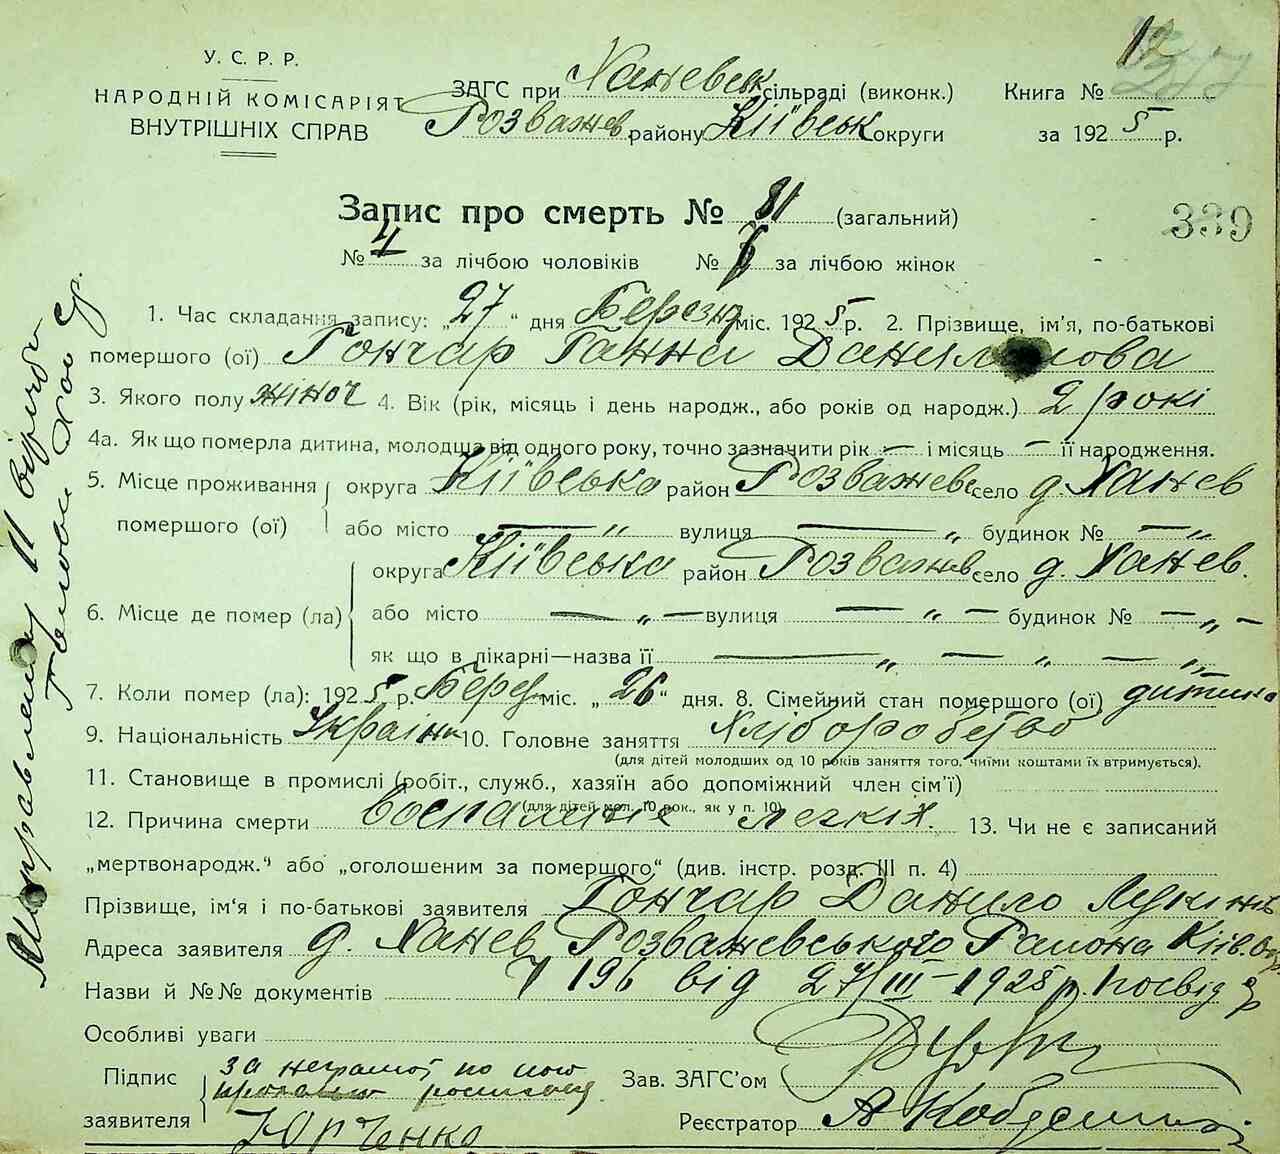 У. С. Р. Р.
НАРОДНІЙ КОМІСАРІЯТ
ВНУТРІШНІХ СПРАВ
ЗАГС при Ханевськ сільраді (виконк.)
Розважев району Київськ округи
Книга №
за 1925 р.
339
Запис про смерть № 81 (загальний)
№ 4 за лічбою чоловіків № за лічбою жінок
1. Час складання запису: „27“ дня Березня міс. 1925 р. 2. Прізвище, ім'я, по-батькові
помершого (ої) Гончар Ганна Данилова
3. Якого полу жіноч 4. Вік (рік, місяць і день народж., або років од народж.) 2 рокі
4а. Як що померла дитина, молодша від одного року, точно зазначити рік — і місяць — її народження.
5. Місце проживання округа Київська район Розважевс село д. Ханев
помершого (ої) або місто — „ вулиця — „ будинок № — „
округа Київська район Розважев село д. Ханев.
6. Місце де помер (ла) або місто — „ — вулиця — „ — будинок № — „ —
як що в лікарні—назва її — „ — „ — „
7. Коли помер (ла): 1925 р. Берез міс. „26“ дня. 8. Сімейний стан помершого (ої) дитина
9. Національність Українк 10. Головне заняття Хліборобство
(для дітей молодших од 10 років заняття того, чиїми коштами їх втримується).
11. Становище в промислі (робіт., служб., хазяїн або допоміжний член сім'ї)
(для дітей мол. 10 рок., як у п. 10)
12. Причина смерти воспаленіє легкіх. 13. Чи не є записаний
„мертвонародж.“ або „оголошеним за помершого“ (див. інстр. розд. III п. 4)
Прізвище, ім'я і по-батькові заявителя Гончар Данило
Адреса заявителя д. Ханев Розважевського Района Київ.
Назви й №№ документів 196 від 27/III—1925 р. посвід
Особливі уваги
Підпис
заявителя
за неграмот по
Юрченко
Зав. ЗАГС'ом
Реєстратор А